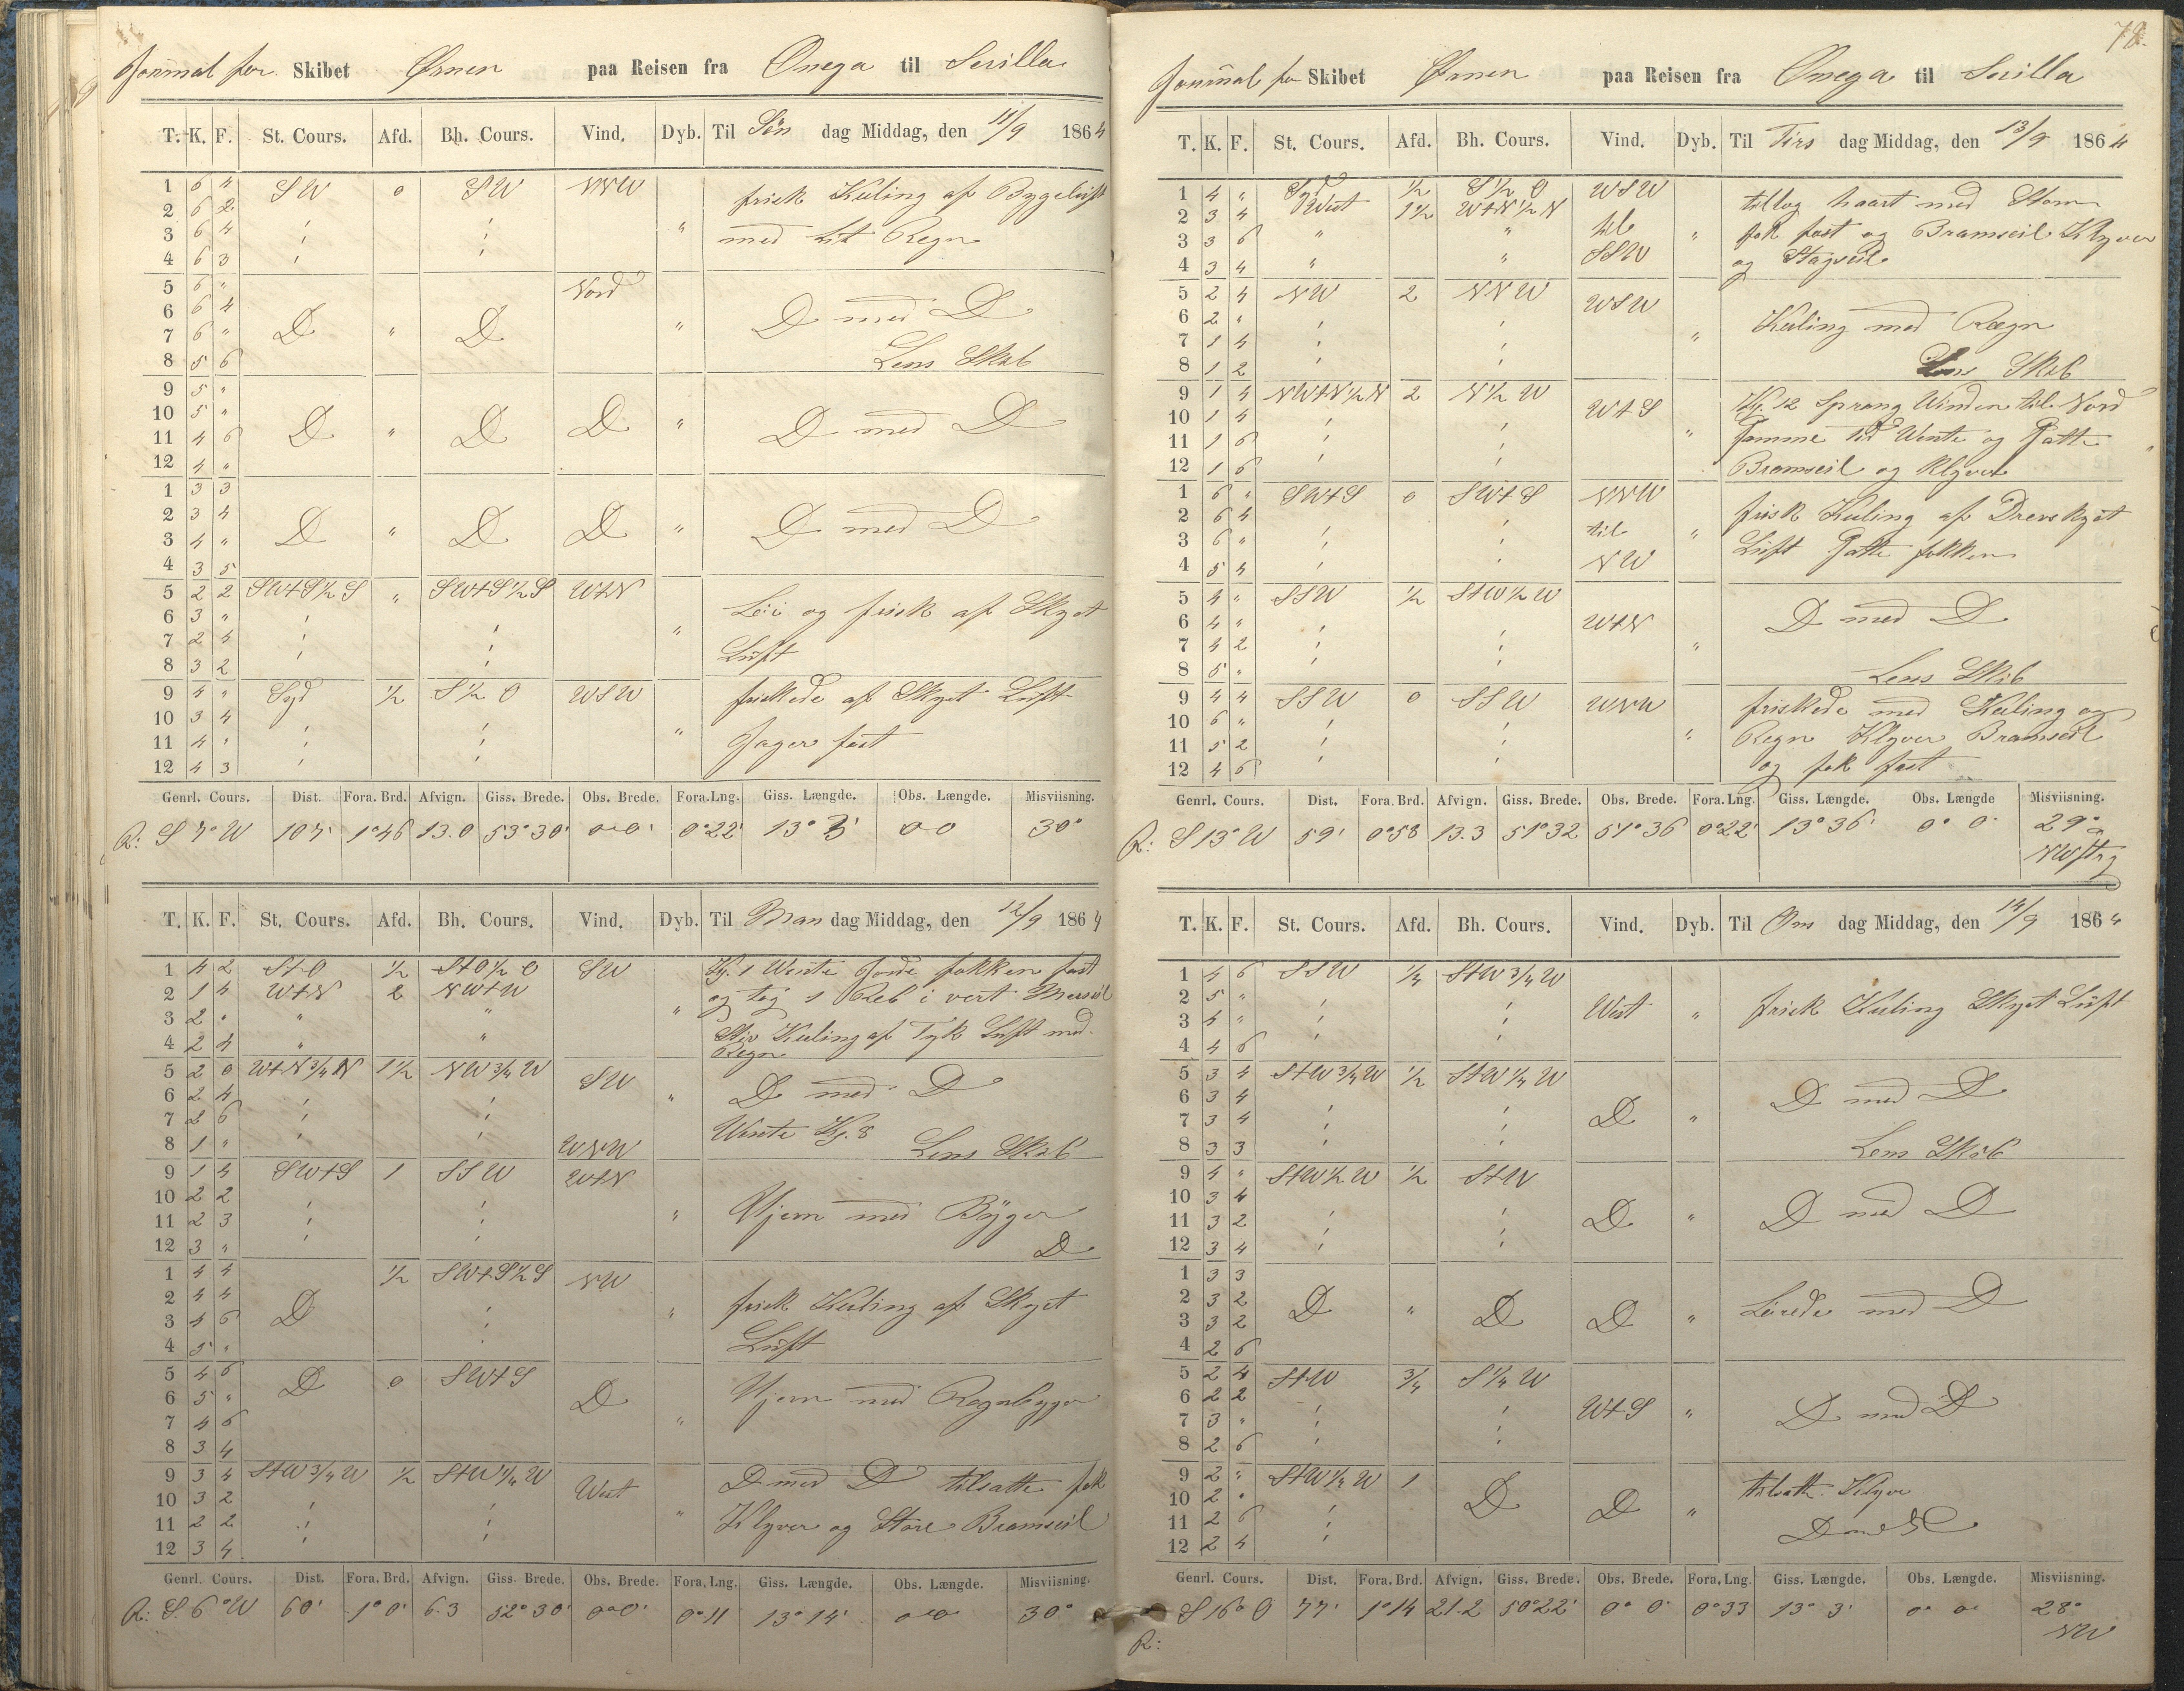 Journal for Skibet Ørnen paa Reisen fra Onega til Sevilla
T. K. F. St. Cours. Afd. Bh. Cours. Vind. Dyb. Til Søn dag Middag, den 11/9 1864
1 6 4 SW 0 SW NNW frisk Kuling af Bygeluft
2 6 2
3 6 4 " med Lit Regn
4 6 3
5 6 " Nord
6 6 4 D " D " D med D
7 6 "
8 5 6 Lens Skib
9 5 "
10 5 " D " D D " D med D
11 4 6
12 4 "
1 3 3
2 3 4 D " D D " D med D
3 4 "
4 3 5
5 2 2 SWtS½S " SWtS½S WtN
6 3 " Løi og frisk af Skyet
7 2 4 "
8 3 2 Luft
9 4 " Syd ½ S½O WSW friskede af Skyet Luft
10 3 4 "
11 4 " Jager fast
12 4 3
Genrl. Cours. Dist. Fora. Brd. Afvign. Giss. Brede. Obs. Brede. Fora. Lng. Giss. Længde. Obs. Længde. Misviisning.
R: S 7° W 107' 1°46 13.0 53°30' 0°0' 0°22' 13° 3' 0 0 30°
T. K. F. St. Cours. Afd. Bh. Cours. Vind. Dyb. Til Man dag Middag, den 12/9 1864
1 4 2 StO ½ StO½O SW Kl. 1 Wente Jorde fokken fast
2 1 4 WtN 2 NWtW og tog 1 Reb i vert Mersseil
3 2 " " " "
4 2 4 " " Stiv Kuling af Tyk Luft med Regn
5 2 0 WtN¾N 1½ NW¾W SW
6 2 4 " D med D
7 2 6 Wente Kl. 8
8 1 " WNW Lens Skib
9 1 4 SWtS 1 SSW WtN
10 2 2
11 2 3 " Ujevn med Byger
12 3 " D
1 4 4 ½ SWtS½S NW
2 4 4 D " frisk Kuling af Skyet
3 4 6
4 5 " Luft
5 4 6 D 0 SWtS
6 5 " D Ujevn med Regnbyger
7 4 6 "
8 3 4
9 3 4 StW¾W ½ StW¼W West D med D tilsatte fok
10 3 2
11 2 2 " Klyver og Store Bramseil
12 3 4
Genrl. Cours. Dist. Fora. Brd. Afvign. Giss. Brede. Obs. Brede. Fora. Lng. Giss. Længde. Obs. Længde. Misviisning.
R: S. 6° W 60' 1° 0' 6.3 52°30' 0°0' 0°11 13°14' 0°0 30°
78.
Journal for Skibet Ørnen paa Reisen fra Onega til Sevilla
T. K. F. St. Cours. Afd. Bh. Cours. Vind. Dyb. Til Tirs dag Middag, den 13/9 1864
1 4 " Syd ½ S½O WSW tiltog haart med Storm
2 3 4 West 1½ WtN½N til
3 3 6 " " " fok fast og Bramseil Klyver
4 3 4 " " SSW og Stagseil
5 2 4 NW 2 NNW WSW
6 2 " Kuling med Rægn
7 1 4 "
8 1 2 Lens Skib
9 1 4 NWtN½N 2 N½W WtS Kl. 12 Sprang Winden til Nord
10 1 4
11 1 6 " Wente og Satte
12 1 6 Bramseil og Klyver
1 6 " SWtS 0 SWtS NNW frisk Kuling af Drevskyet
2 6 4 til
3 6 " " Luft Satte fokken
4 5 4 NW
5 4 " SSW ½ StW½W WtN D med D
6 4 "
7 4 2 "
8 5 " Lens Skib
9 4 4 SSW 0 SSW WNW friskede med Kuling og
10 6 "
11 5 2 " Regn Klyver Bramseil
12 4 6 og fok fast
Genrl. Cours. Dist. Fora. Brd. Afvign. Giss. Brede. Obs. Brede. Fora. Lng. Giss. Længde. Obs. Længde Misviisning.
R: S 13° W 59' 0°58 13.3 51°32 51°36 0°22' 13°36' 0° 0' 29°
T. K. F. St. Cours. Afd. Bh. Cours. Vind. Dyb. Til Ons dag Middag, den 14/9 1864
1 4 6 SSW ¼ StW¾W
2 5 " West " frisk Kuling Skyet Luft
3 4 "
4 4 6
5 3 4 StW¾W ½ StW¼W
6 3 4 D med D
7 3 4 D "
8 3 3 Lens Skib
9 4 " StW½W ½ StW
10 3 4
11 3 2 D " D med D
12 3 4
1 3 3
2 3 2 D " D D " Løiede med D
3 3 2
4 2 6
5 2 4 StW ¾ S¼W
6 2 2 WtS " D med D
7 3 "
8 2 6
9 2 " StW¼W 1 tilsatte Klyver
10 2 " D D "
11 2 6 D med D
12 2 4
Genrl. Cours. Dist. Fora. Brd. Afvign. Giss. Brede. Obs. Brede. Fora. Lng. Giss. Længde. Obs. Længde. Misviisning.
R: S 16° O 77' 1°14 21.2 50°22' 0° 0' 0°33 13° 3' 0° 0' 28°
NW